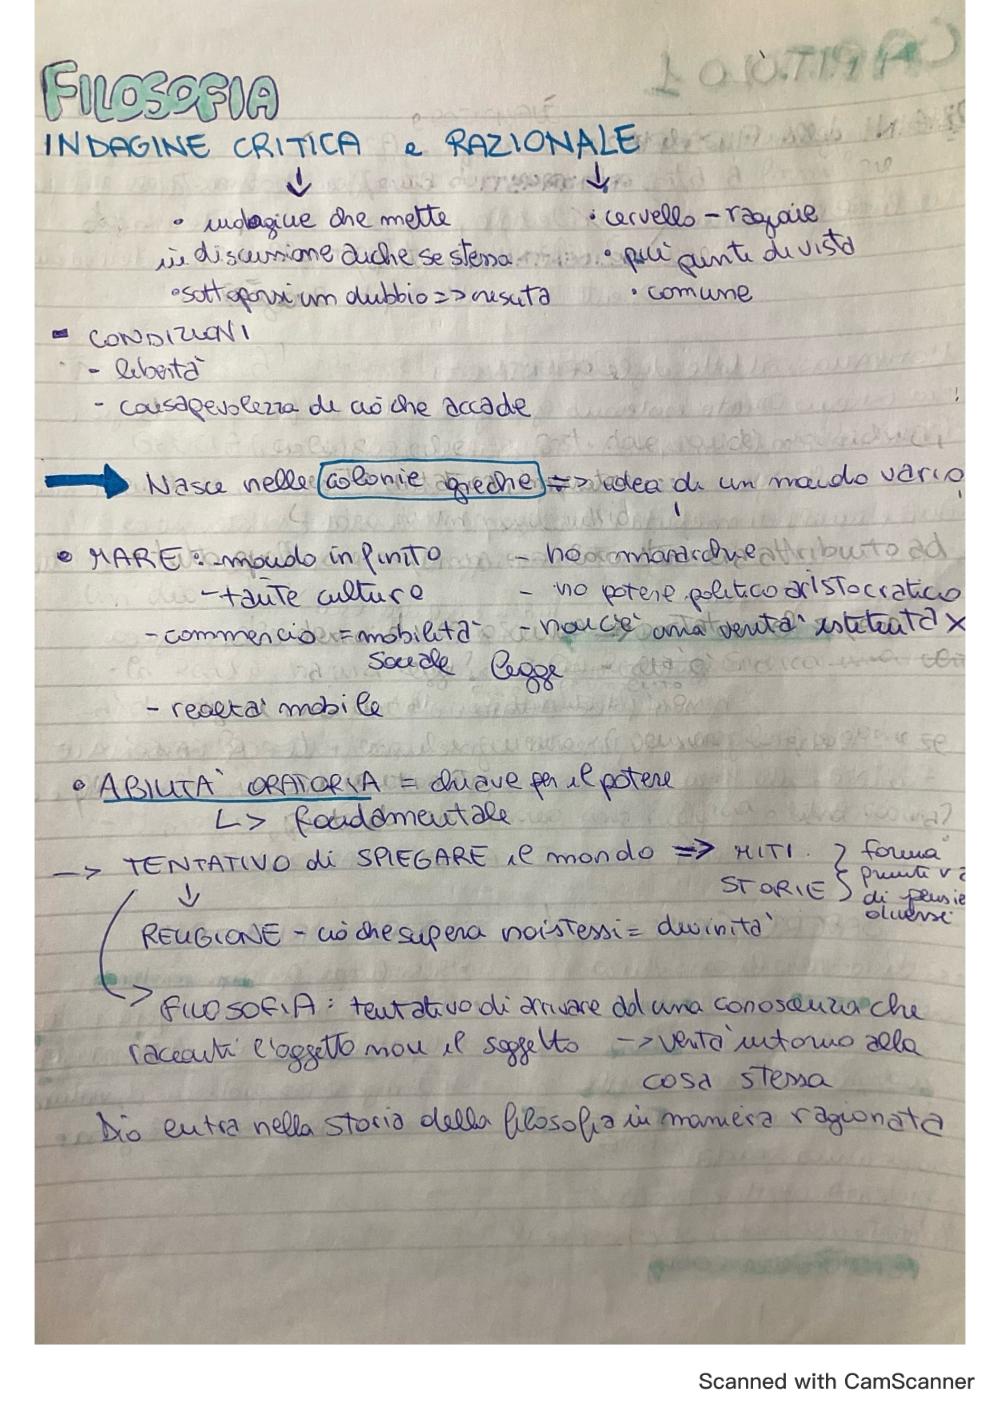 FILOSOFIA
INDAGINE CRITICA e RAZIONALE
↓ ↓
• indagine che mette
in discussione anche se stessa
• sottoporsi un dubbio =>
• cervello - ragione
• più punti di vista
• comune
- CONDIZIONI
- libertà
- consapevolezza di ciò che accade
→ Nasce nelle colonie greche => idea di un mondo vario
• MARE: - mondo infinito
- tante culture
- commercio = mobilità
sociale
- realtà mobile
- no monarchie
- no potere politico aristocratico
- non c'è una verità istituita x
legge
• ABILITÀ ORATORIA = chiave per il potere
↳ fondamentale
-> TENTATIVO di SPIEGARE il mondo => MITI
STORIE
forma
di
diversi
↓
RELIGIONE - ciò che supera noi stessi = divinità
-> FILOSOFIA: tentativo di arrivare ad una conoscenza che
racconti l'oggetto non il soggetto -> verità intorno alla
cosa stessa
Dio entra nella storia della filosofia in maniera ragionata
Scanned with CamScanner